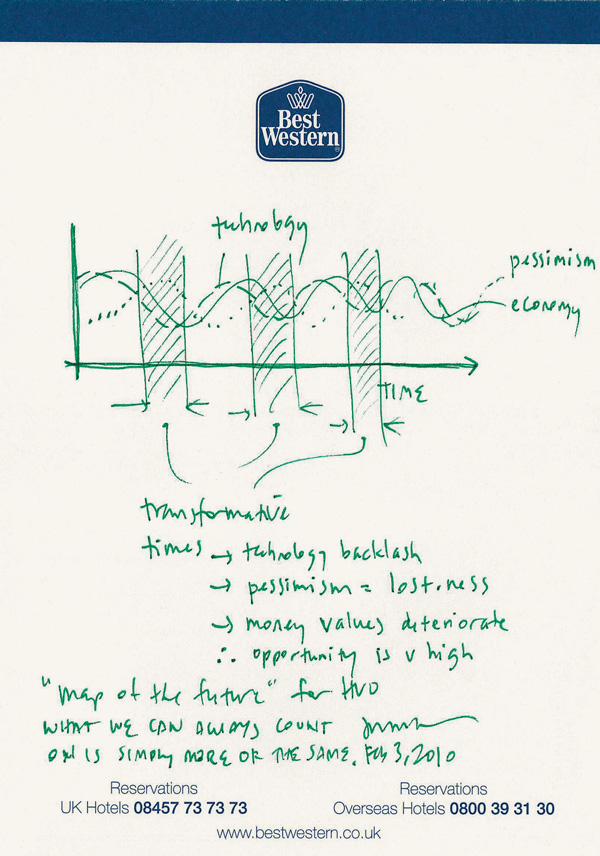 Best
Western
technology
pessimism
economy
TIME
transformative
times → technology backlash
→ pessimism = lost.ness
→ money values deteriorate
∴ opportunity is v high
"map of the future" for HUO
WHAT WE CAN ALWAYS COUNT
ON IS SIMPLY MORE OF THE SAME. Feb 3, 2010
Reservations
UK Hotels 08457 73 73 73
Reservations
Overseas Hotels 0800 39 31 30
www.bestwestern.co.uk